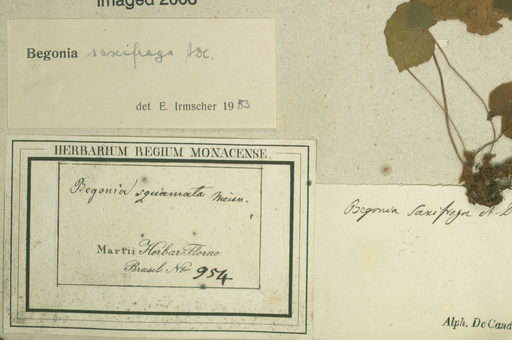 Imaged 2008
Begonia saxifraga ADC.
det. E. Irmscher 1953
HERBARIUM REGIUM MONACENSE.
Begonia squamata Meisn.
Martii Herbar. Florae
Brasil. No 954
Begonia Saxifraga A D
Alph. De Cand